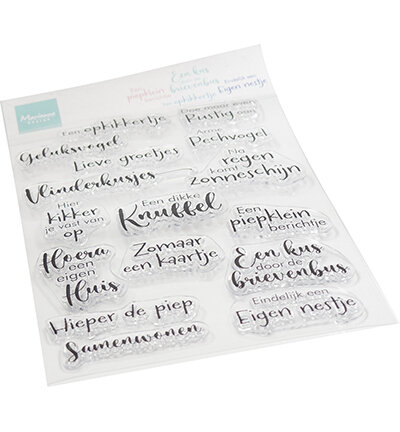 Marianne
DESIGN
Een kus
piepklein
door de
brievenbus
Eindelijk een
Een opkikkertje
Eigen nestje
Een opkikkertje
Doe maar even
Rustig aan
Geluksvogel
Arme
Pechvogel
Lieve groetjes
Na
regen
komt
zonneschijn
Vlinderkusjes
Hier
kikker
je van
op
Een dikke
Knuffel
Een
piepklein
berichtje
Hoera
een
eigen
Huis
Zomaar
een kaartje
Een kus
door de
brievenbus
Hieper de piep
Eindelijk een
Eigen nestje
Samenwonen